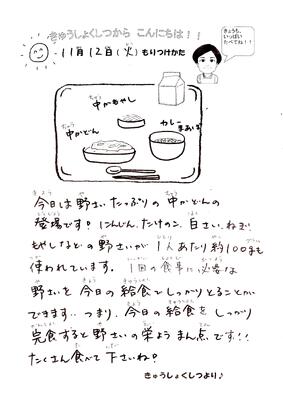 きゅうしょくしつから こんにちは！！
11月12日(火) もりつけかた
きょうも、
いっぱい
たべてね！！
中かもやし
中かどん
カレー
まあぼ
今日は野さいたっぷりの中かどんの
登場です！にんじん、たけのこ、白さい、ねぎ、
もやしなどの野さいが1人あたり約100gも
使われています。1回の食事に必要な
野さいを今日の給食でしっかりとることが
できます‥つまり、今日の給食をしっかり
完食すると野さいの栄ようまん点です！！
たくさん食べて下さいね♪
きゅうしょくしつより♪